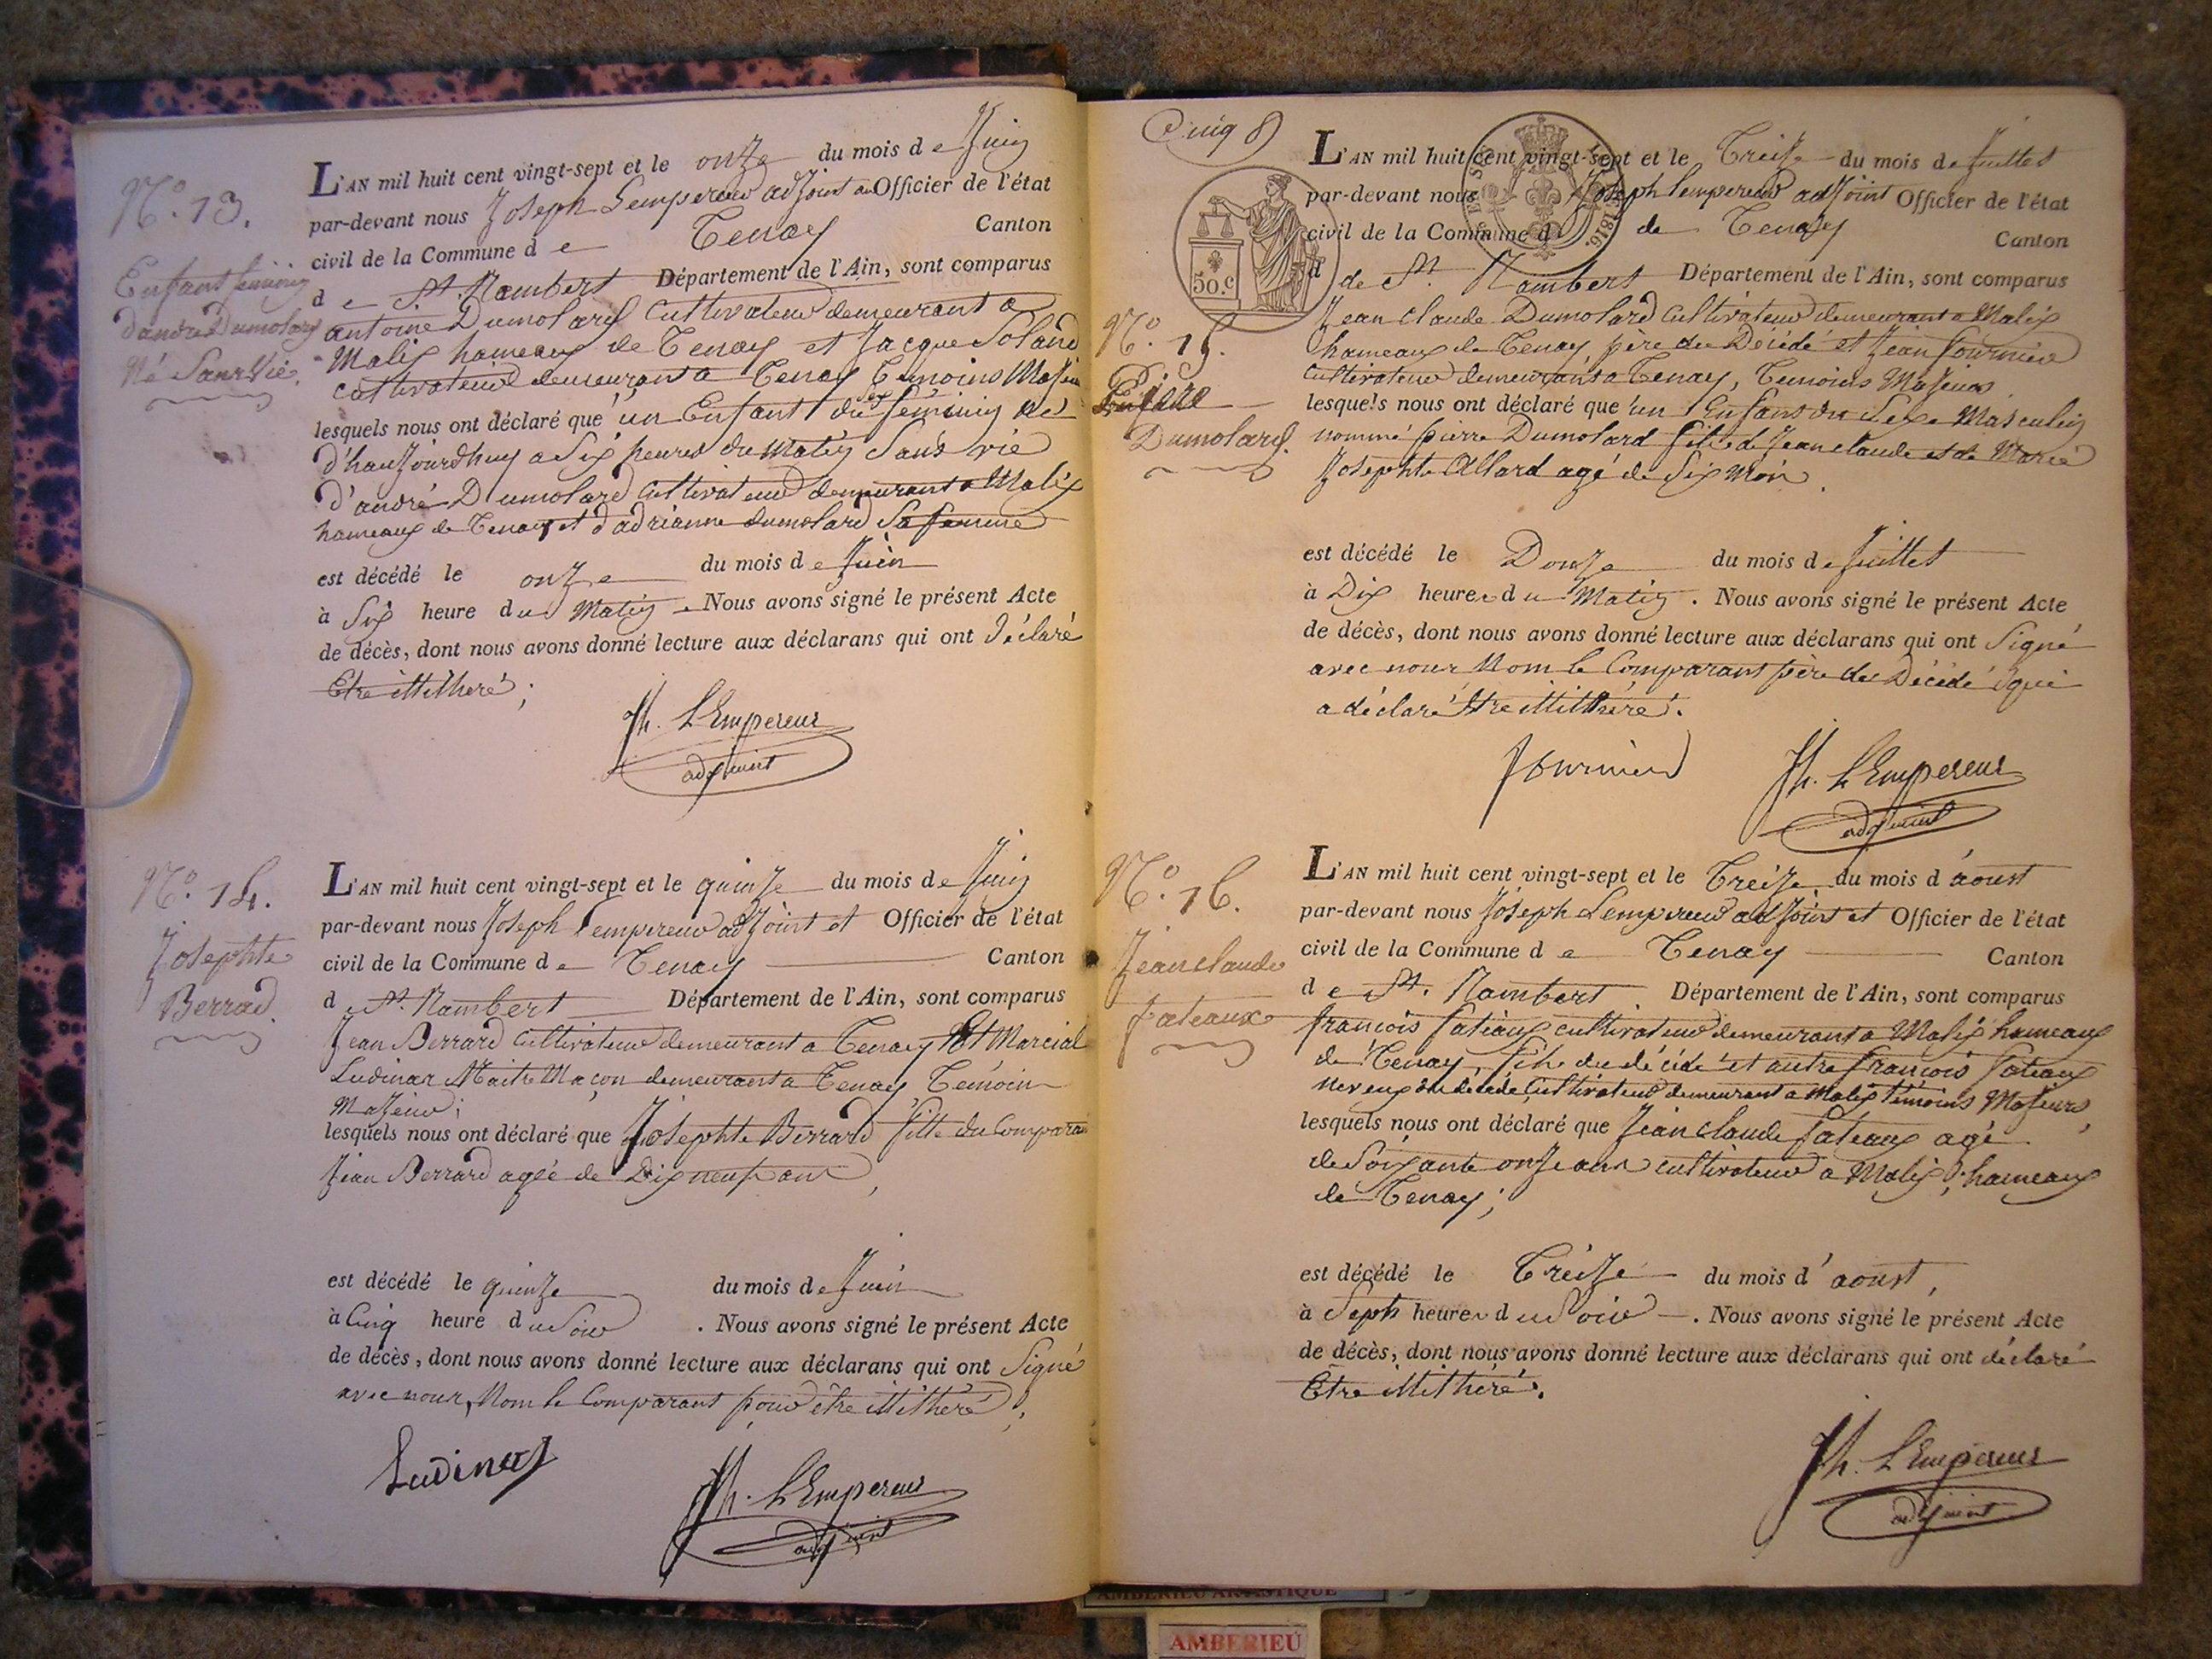 N.o 13.
Enfant féminin
d'andré Dumolard
Né Sans Vie.
L'AN mil huit cent vingt-sept et le onze du mois de Juin
par-devant nous Joseph Lempereur adjoint Officier de l'état
civil de la Commune de Tenay Canton
de St. Rambert Département de l'Ain, sont comparus
antoine Dumolard Cultivateur demeurant a
Malix hameaux de Tenay et Jacque Soland
cultivateur demeurant a Tenay Temoins Majeur
lesquels nous ont déclaré que un Enfant du sex féminin né
d'haujourdhuy a Six heures du Matin Sans vie
d'andré Dumolard Cultivateur demeurant a Malix
hameaux de Tenay et d'adrianne dumolard Sa femme
est décédé le onze du mois de Juin
à Six heure du Matin. Nous avons signé le présent Acte
de décès, dont nous avons donné lecture aux déclarans qui ont déclaré
Etre illitheré;
Jh. LEmpereur
adjoint
N.o 14.
Josephte
Berrad.
L'AN mil huit cent vingt-sept et le quinze du mois de Juin
par-devant nous Joseph Lempereur adjoint et Officier de l'état
civil de la Commune de Tenay Canton
de St. Rambert Département de l'Ain, sont comparus
Jean Berrard Cultivateur demeurant a Tenay Et Marcial
Ludinar Maitre Maçon demeurant a Tenay Temoin
Majeur;
lesquels nous ont déclaré que Josephte Berrard fille du Comparan
Jean Berrard agée de Dix neuf ans,
est décédé le quinze du mois de Juin
à Cinq heure du Soir. Nous avons signé le présent Acte
de décès, dont nous avons donné lecture aux déclarans qui ont Signé
avec nous, Nom le Comparant pour être illitheré;
Ludinar
Jh. LEmpereur
adjoint
50.c
1816.
L'AN mil huit cent vingt-sept et le Treize du mois de Juillet
par-devant nous Joseph Lempereur adjoint Officier de l'état
civil de la Commune d de Tenay Canton
d de St. Rambert Département de l'Ain, sont comparus
N.o 15.
Piere
Dumolard.
Jean Claude Dumolard Cultivateur demeurant a Malix
hameaux de Tenay père du Décédé et Jean fournier
Cultivateur demeurant a Tenay, Temoins Majeurs
lesquels nous ont déclaré que un Enfans du Sexe Masculin
nommé pierre Dumolard fils de Jean claude et de Marie
Josephte Allard agé de Six mois.
est décédé le Douze du mois de Juillet
à Dix heures du Matin. Nous avons signé le présent Acte
de décès, dont nous avons donné lecture aux déclarans qui ont Signé
avec nous Nom le Comparant père du Décédé qui
a déclaré Etre illithéré.
fournier
Jh. LEmpereur
adjoint
N.o 16.
Jean claude
fateaux
L'AN mil huit cent vingt-sept et le Treize du mois d'aoust
par-devant nous Joseph Lempereur adjoint et Officier de l'état
civil de la Commune de Tenay Canton
de St. Rambert. Département de l'Ain, sont comparus
francois fateaux cultivateur demeurant a Malix hameaux
de Tenay, fils du décédé et autre francois fateaux
neveux du décédé Cultivateur demeurant a Malix témoins Majeurs,
lesquels nous ont déclaré que Jean claude fateaux agé
de Soixante onze ans cultivateur a Malix, hameaux
de Tenay;
est décédé le Treize du mois d'aoust,
à Seph heures du Soir. Nous avons signé le présent Acte
de décès, dont nous avons donné lecture aux déclarans qui ont déclaré
Etre illitheré.
Jh. LEmpereur
adjoint
AMBERIEU ARTISTIQUE
AMBERIEU